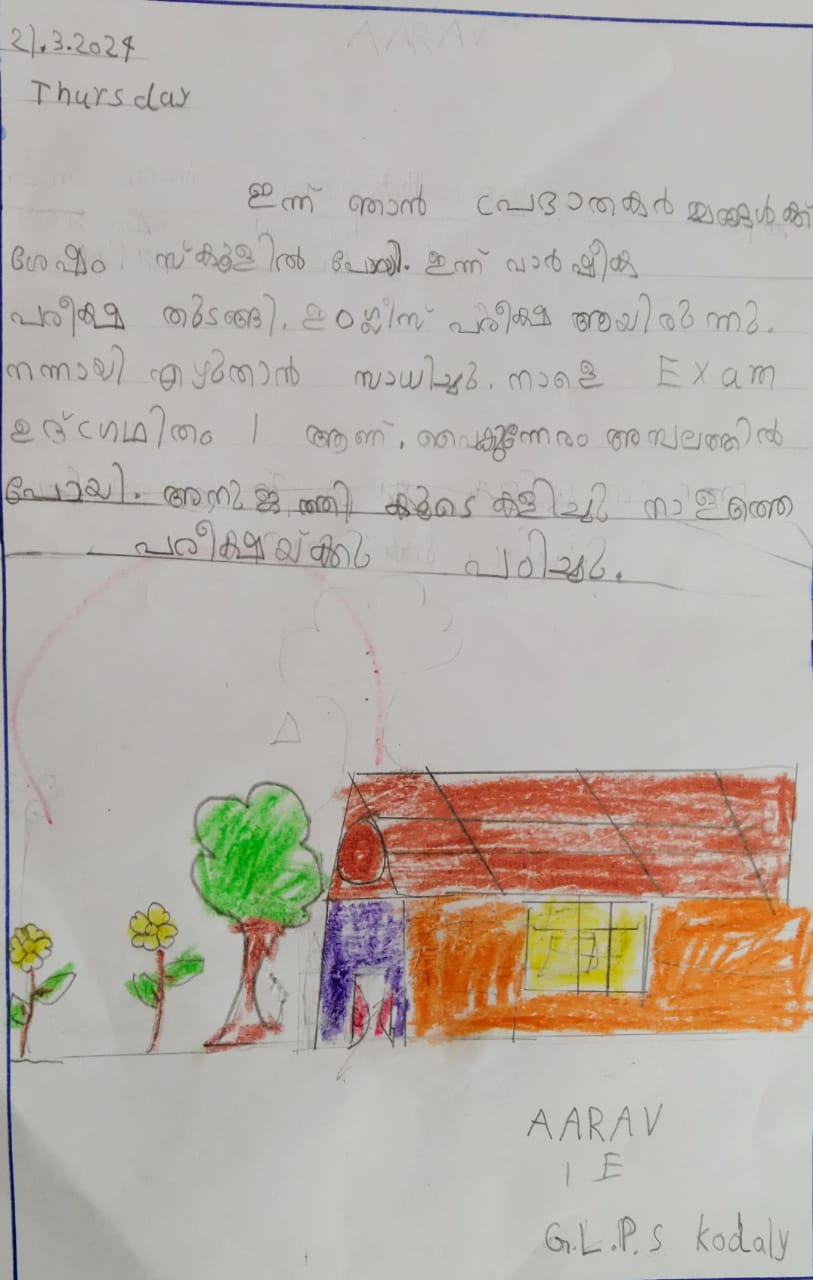 21.3.2024
Thursday
ഇന്ന് ഞാൻ പ്രഭാതകർ മ്മങ്ങൾക്ക്
ശേഷം സ്കൂളിൽ പോയി. ഇന്ന് വാർഷിക
പരീക്ഷ തുടങ്ങി. ഇംഗ്ലീസ് പരീക്ഷ ആയിരുന്നു.
നന്നായി എഴുതാൻ സാധിച്ചു. നാളെ Exam
ഉദ്ഗ്രഥിതം 1 ആണ്. വൈകുന്നേരം അമ്പലത്തിൽ
പോയി. അനുജത്തി കൂടെ കളിച്ചു നാളത്തെ
പരീക്ഷയ്ക്കു പഠിച്ചു.
AARAV
1 E
G.L.P.S kodaly